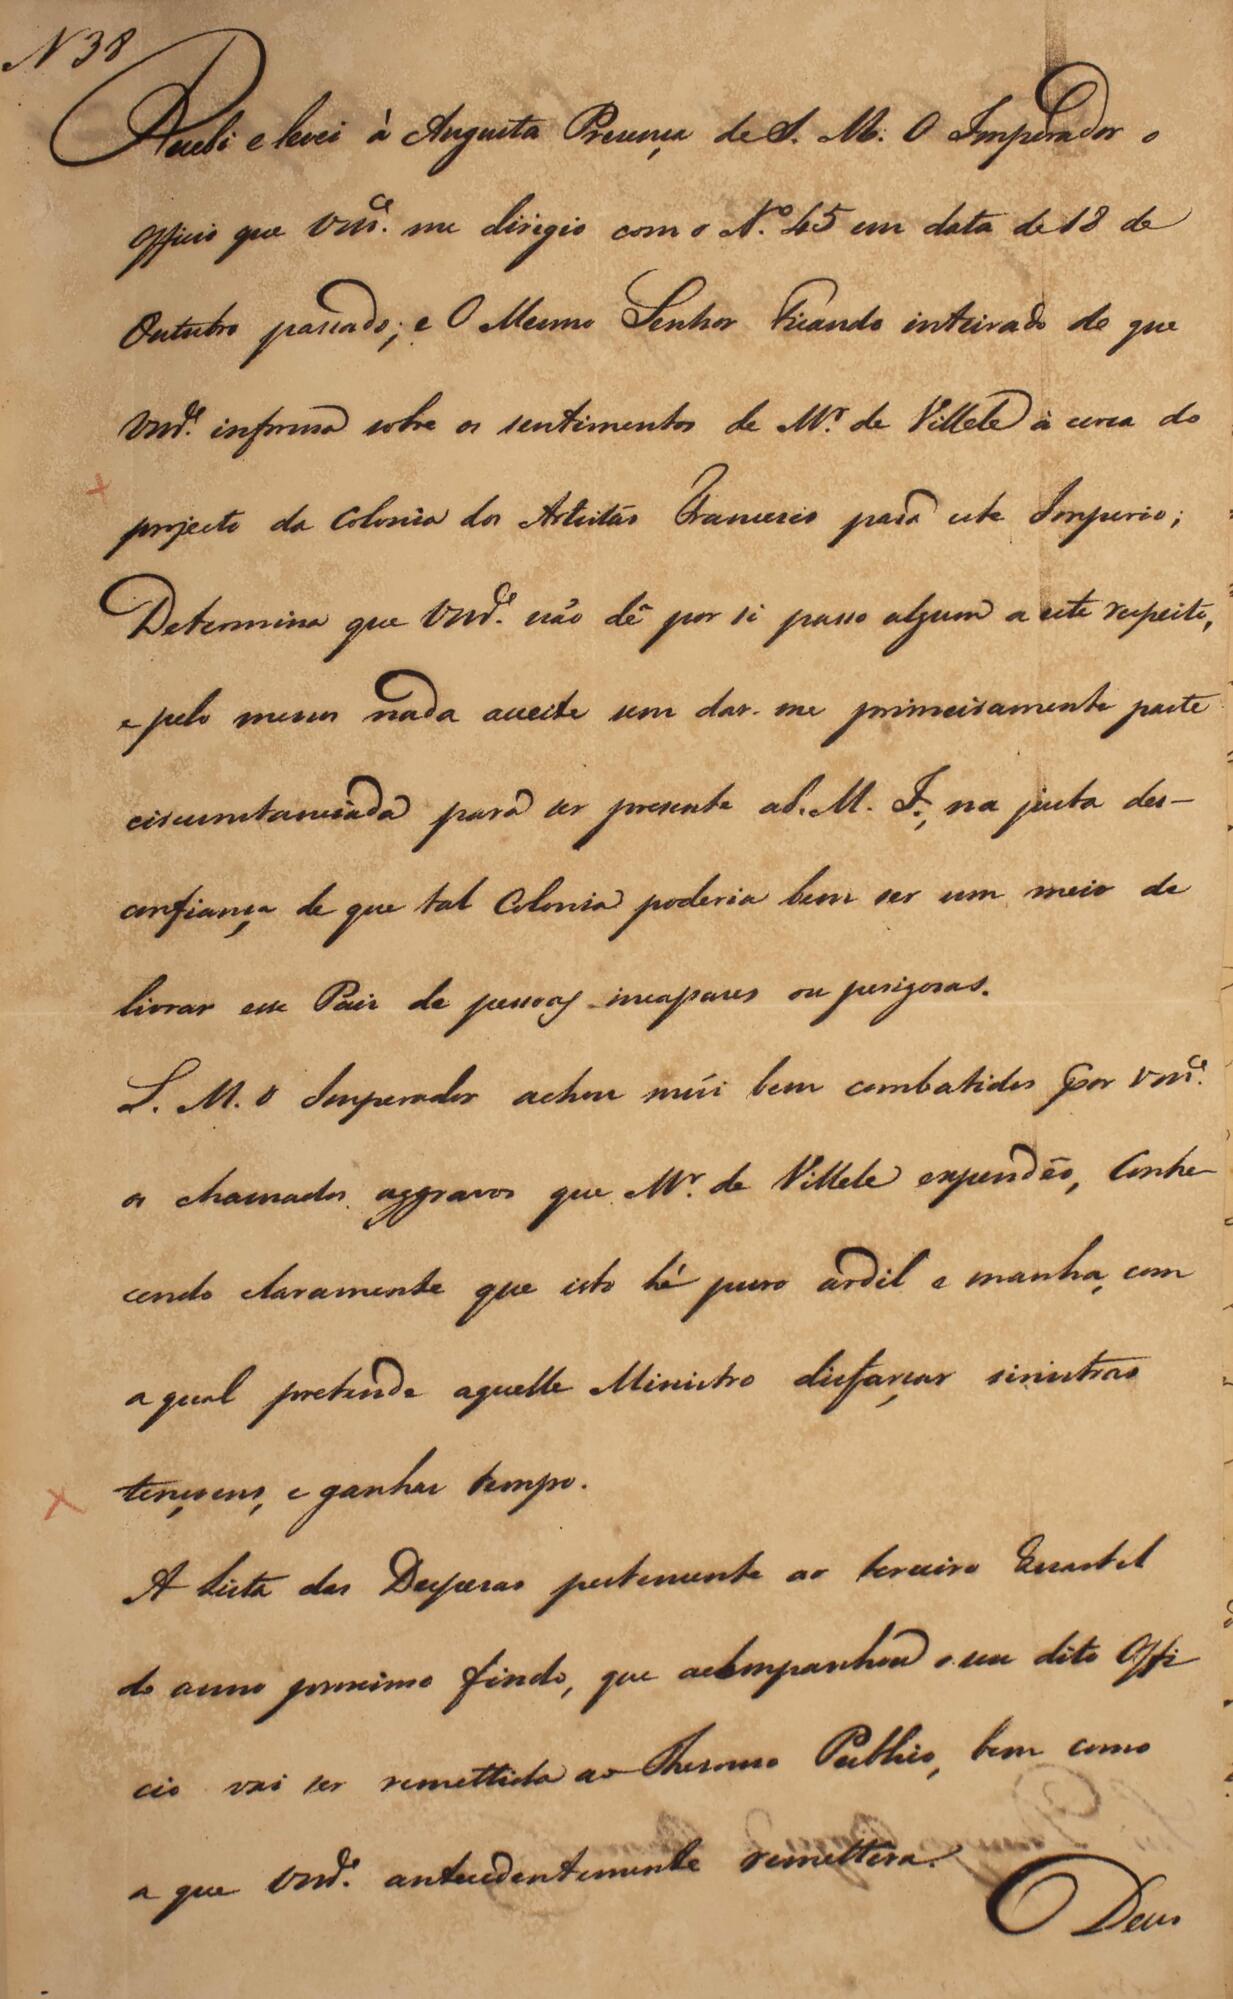 N 38
Recebi e levei à Augusta Presença de S. M. O Imperador o
Officio que Vm.ce me dirigio com o N.º 45 em data de 18 de
Outubro passado; e O Mesmo Senhor Ficando inteirado de que
Vm.ce informa sobre os sentimentos de M.r de Villele à cerca do
projecto da Colonia dos Artistas Francezes para este Imperio;
Determina que Vm.ce não dê por si passo algum a este respeito,
e pelo menos nada acceite sem dar-me primeiramente parte
circumstanciada para ser presente a S. M. I., na justa des-
confiança de que tal Colonia poderia bem ser um meio de
livrar esse Paiz de pessoas incapazes ou perigosas.
S. M. O Imperador achou mui bem combatidos por Vm.ce
os chamados aggravos que M.r de Villele expendêo, Conhe-
cendo claramente que isto hé puro ardil e manha, com
a qual pretende aquelle Ministro disfarçar sinistras
tençoens, e ganhar tempo.
A Lista das Despezas pertencente ao terceiro Quartel
do anno proximo findo, que acompanhou o seu dito Offi-
cio vai ser remettida ao Thesouro Publico, bem como
a que Vm.ce antecedentemente remettera.
Deus